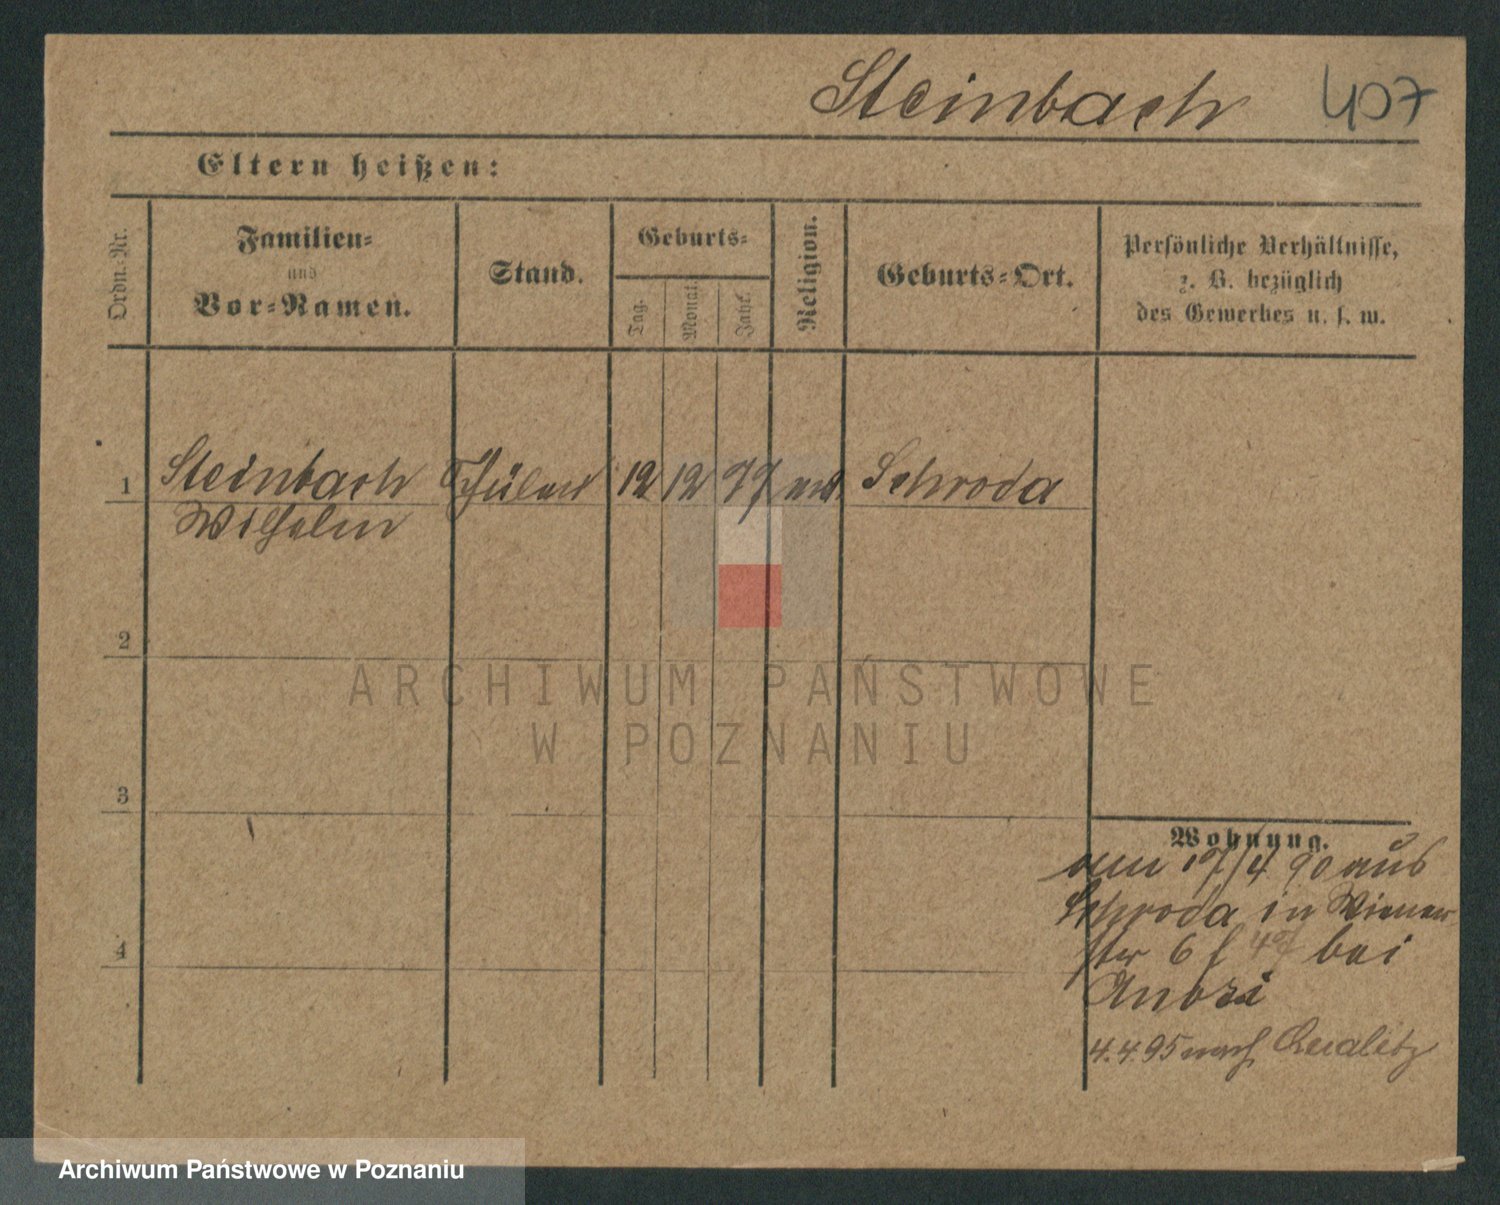 Steinbach 407
Eltern heißen:
Ordn.-Nr.
Familien-
und
Vor-Namen.
Stand.
Geburts-
Tag.
Monat.
Jahr.
Religion.
Geburts-Ort.
Persönliche Verhältnisse,
z. B. bezüglich
des Gewerbes u. s. w.
1 Steinbach Schüler 12 12 77 Schroda
Wilhelm
2
ARCHIWUM PAŃSTWOWE
W POZNANIU
3
Wohnung.
am 17/4 90 aus
Schroda in Wiener
str 6 bei
4
4.4.95 nach
Archiwum Państwowe w Poznaniu